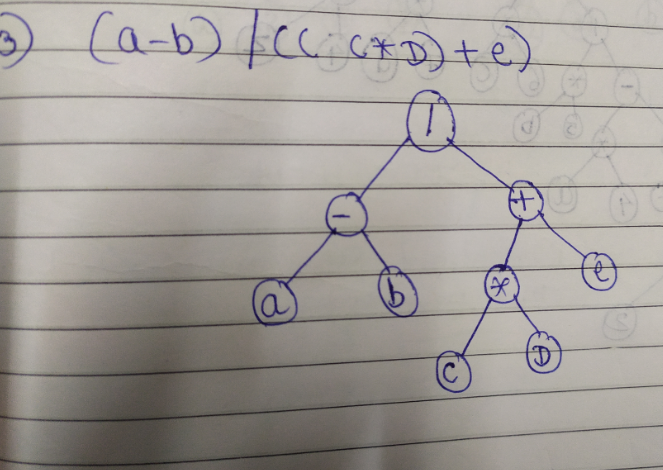 3) (a-b) / ((C*D)+e)
/
- +
a b * e
C D